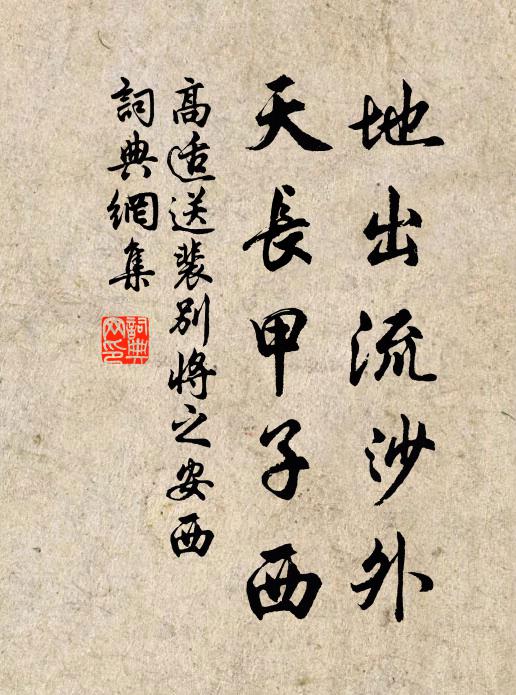 地出流沙外
天長甲子西
高适送裴别将之安西
詞典網集
詞典網印